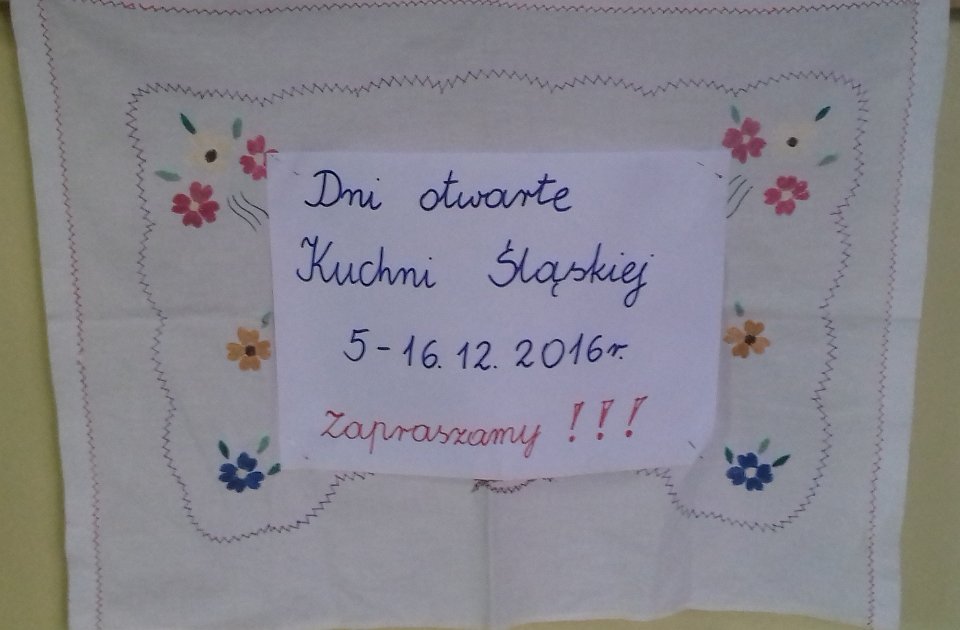 Dni otwarte
Kuchni Śląskiej
5-16.12.2016r.
Zapraszamy !!!